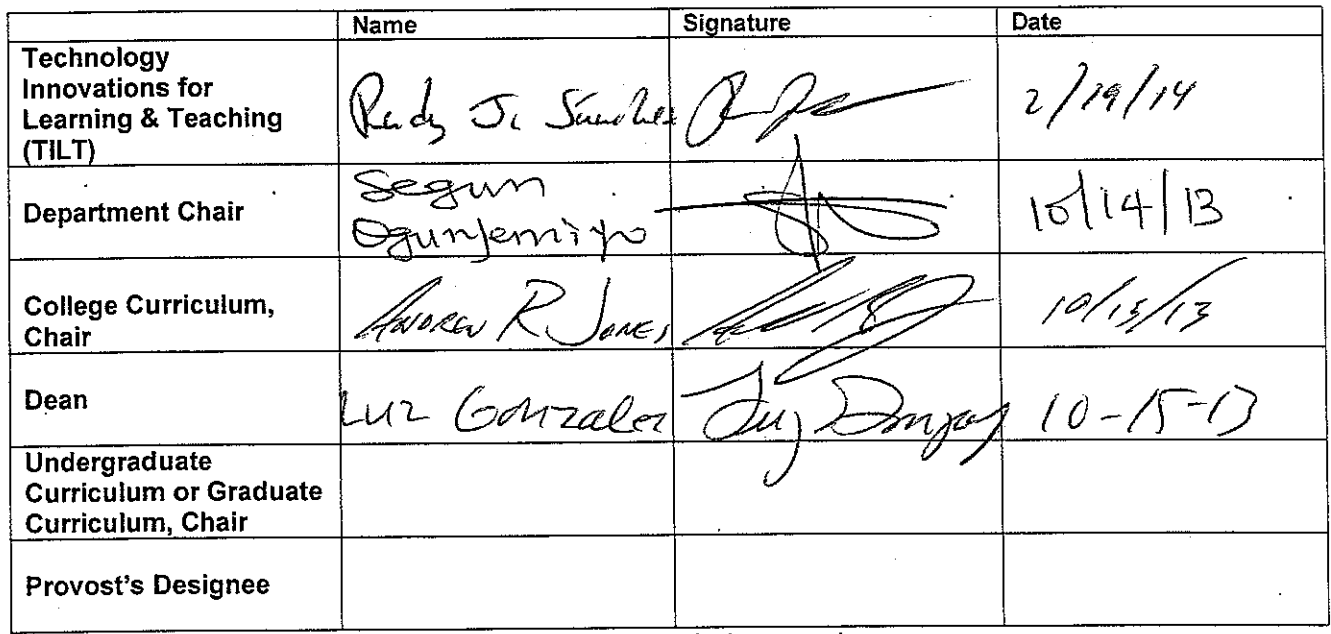 Name Signature Date
Technology
Innovations for
Learning & Teaching
(TILT)
Rudy J. Sanchez 2/19/14
Department Chair
Segun
Ogunjemiyo
10/14/13
College Curriculum,
Chair
Andrew R Jones 10/15/13
Dean
Luz Gonzalez Luz Gonzalez 10-15-13
Undergraduate
Curriculum or Graduate
Curriculum, Chair
Provost's Designee